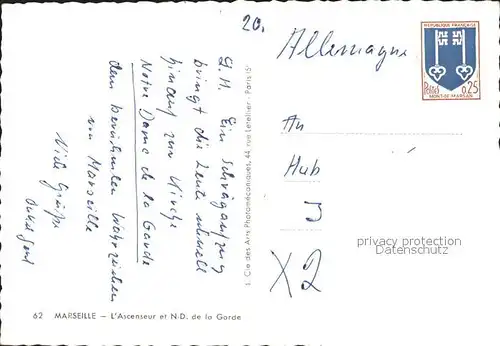 20.
Allemagne
RÉPUBLIQUE FRANÇAISE
Postes 0,25
MONT-DE-MARSAN
L.H. Ein Schrägaufzug
bringt die Leute schnell
hinauf zur Kirche
Notre Dame de la Garde
dem berühmten Wahrzeichen
von Marseille
Viele Grüße
Onkel
An
Hub
J
X2
privacy protection
Datenschutz
I. Cie des Arts Photomécaniques, 44 rue Letellier - Paris 15
62 MARSEILLE – L'Ascenseur et N-D. de la Garde